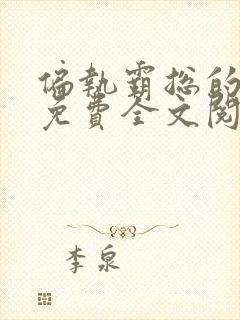 偏執霸总的
免費全文閱
李泉